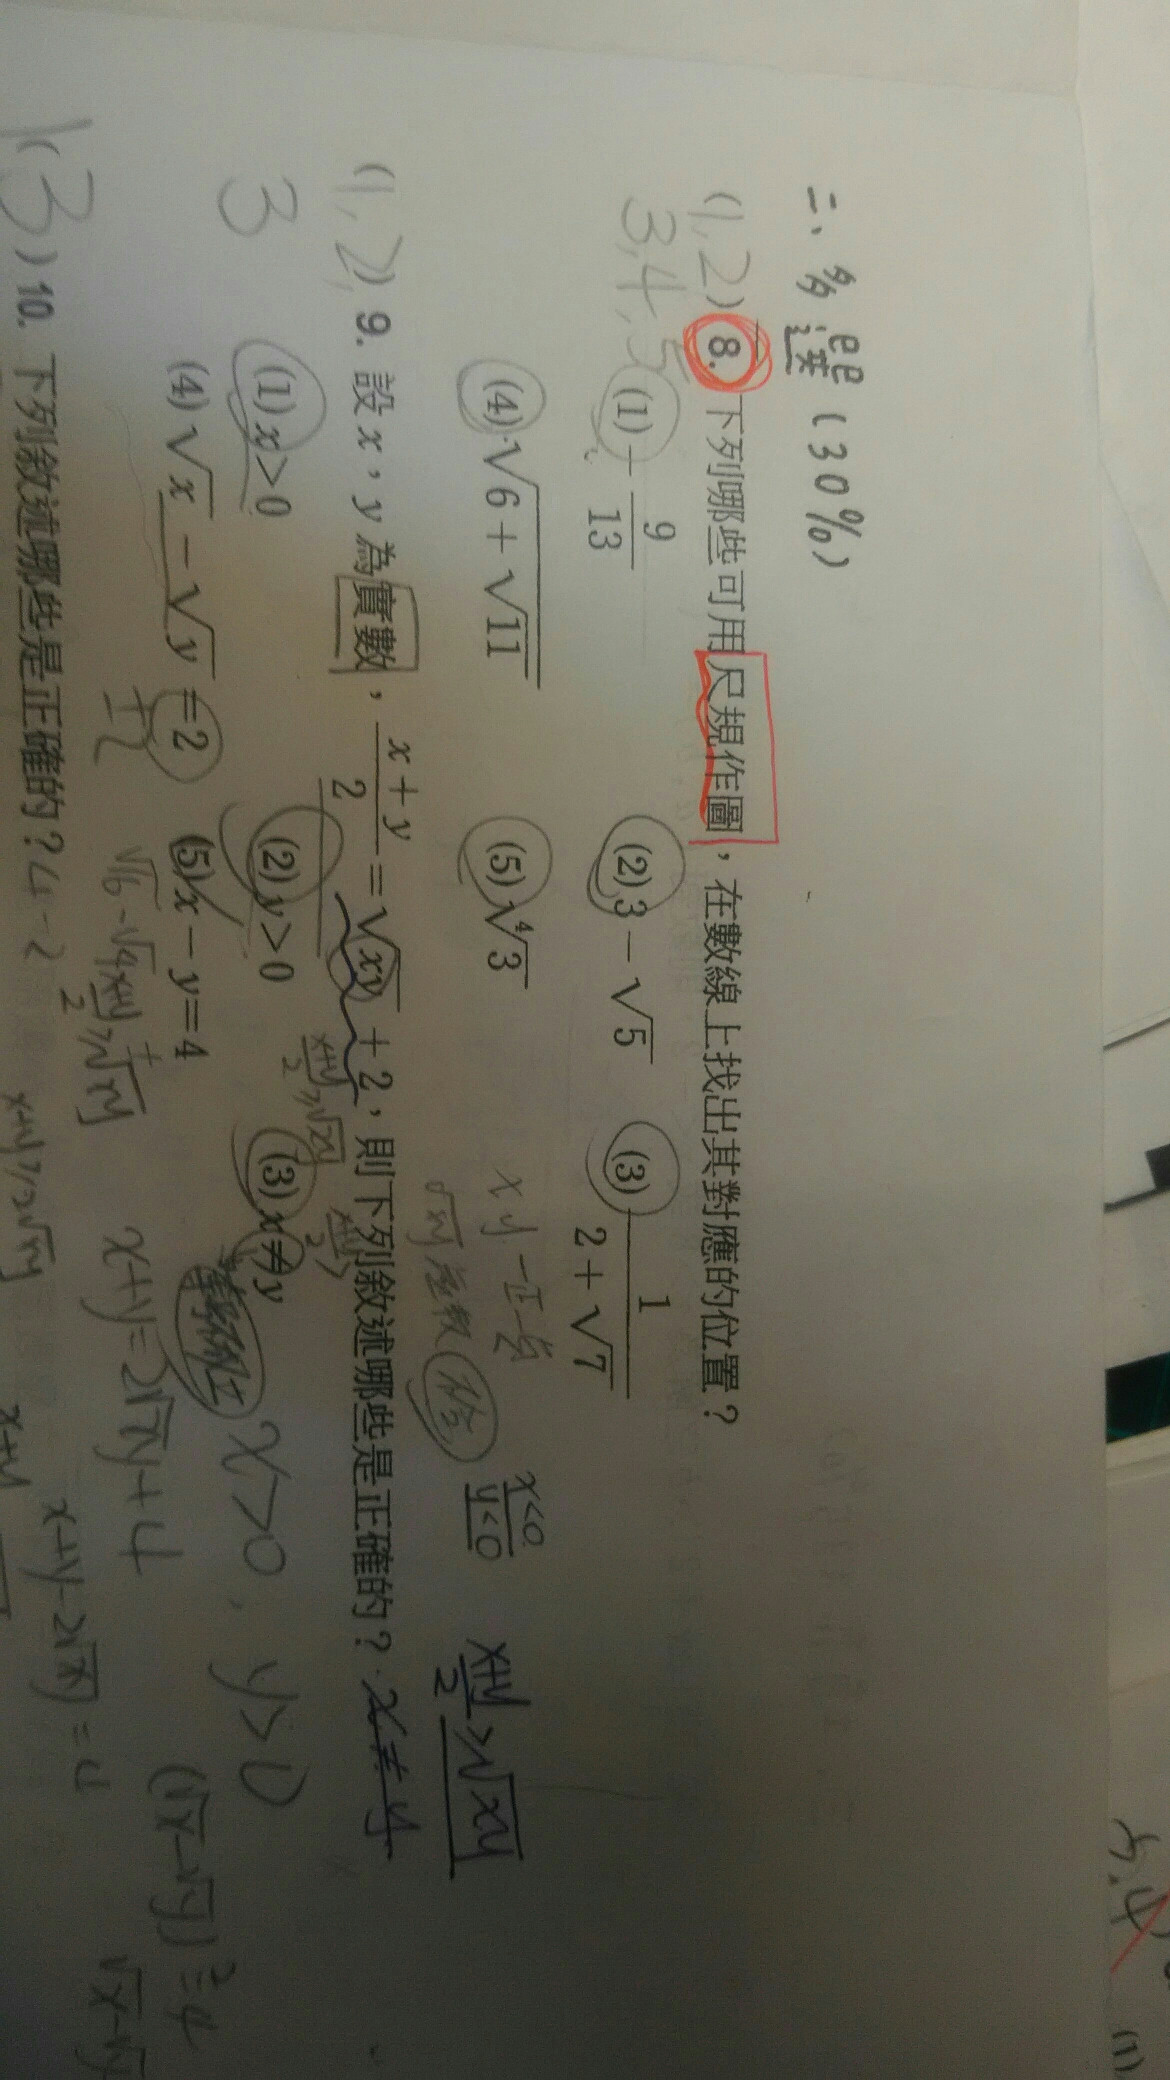 二、多選(30%)
(1,2) 8. 下列哪些可用尺規作圖，在數線上找出其對應的位置？
3,4,5 (1) -9/13 (2) 3-√5 (3) 1/(2+√7)
(4) √(6+√11) (5) ∜3
xy 一正一負
√xy 虛數 不合
x<0
y<0
(x+y)/2 > √xy
(1,2) 9. 設 x，y 為實數，(x+y)/2 = √xy + 2，則下列敘述哪些是正確的？ x≠y
(x+y)/2 ≥ √xy
3 (1) x>0 (2) y>0 (3) x≠y
x>0, y>0
(4) √x - √y = 2 (5) x-y=4
±2
x+y=2√xy+4
(√x-√y)²=4
(x+y)/2 ≥ √xy
x+y-2√xy=4
√x-√y
(3) 10. 下列敘述哪些是正確的？ 4-2
x+y≥2√xy
x+y
(1)